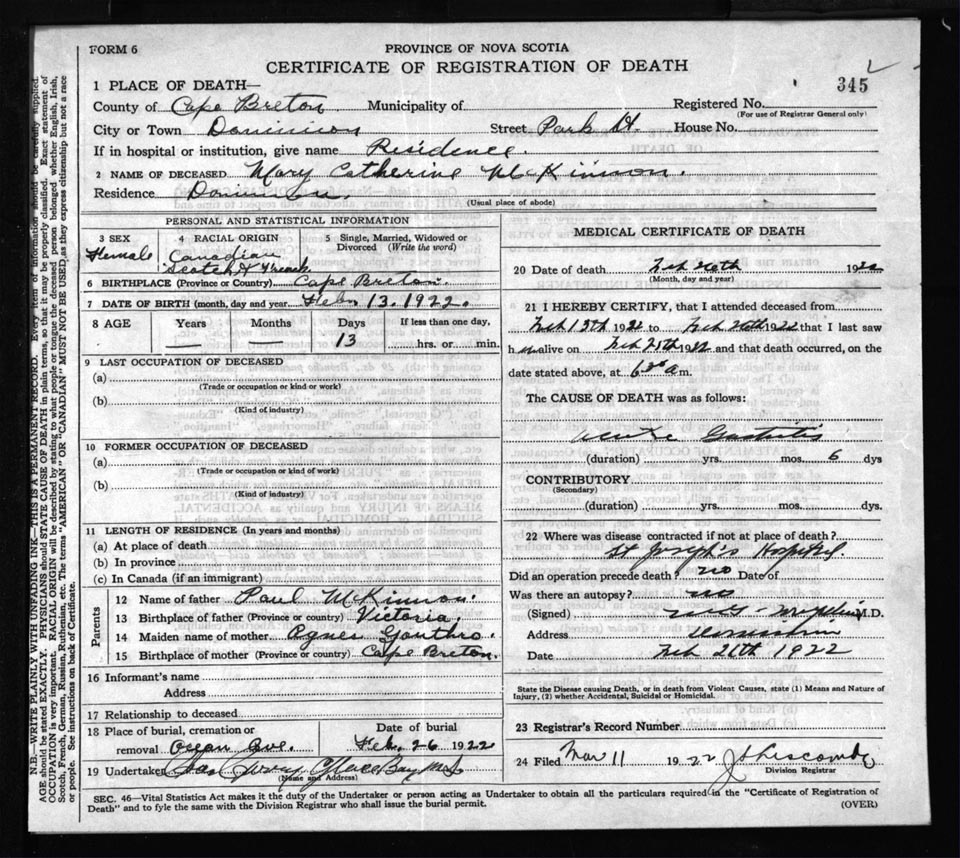 FORM 6
PROVINCE OF NOVA SCOTIA
CERTIFICATE OF REGISTRATION OF DEATH
345
1 PLACE OF DEATH—
County of Cape Breton Municipality of Registered No.
(For use of Registrar General only)
City or Town Dominion Street Park St. House No.
If in hospital or institution, give name Residence.
2 NAME OF DECEASED Mary Catherine McKinnon.
Residence Dominion.
(Usual place of abode)
PERSONAL AND STATISTICAL INFORMATION
3 SEX 4 RACIAL ORIGIN 5 Single, Married, Widowed or
Divorced (Write the word)
Female Canadian
Scotch & French
6 BIRTHPLACE (Province or Country) Cape Breton.
7 DATE OF BIRTH (month, day and year Feb. 13. 1922.
8 AGE Years Months Days If less than one day,
13 hrs. or min.
9 LAST OCCUPATION OF DECEASED
(a)
(Trade or occupation or kind or work)
(b)
(Kind of industry)
10 FORMER OCCUPATION OF DECEASED
(a)
(Trade or occupation or kind of work)
(b)
(Kind of industry)
11 LENGTH OF RESIDENCE (In years and months)
(a) At place of death
(b) In province
(c) In Canada (if an immigrant)
Parents
12 Name of father Paul McKinnon.
13 Birthplace of father (Province or country) Victoria.
14 Maiden name of mother Agnes Gouthro.
15 Birthplace of mother (Province or country) Cape Breton.
16 Informant's name
Address
17 Relationship to deceased
18 Place of burial, cremation or Date of burial
removal Ocean Ave. Feb. 26 1922
19 Undertaker Glace Bay N.S.
(Name and Address)
MEDICAL CERTIFICATE OF DEATH
20 Date of death Feb 26th 1922
(Month, day and year)
21 I HEREBY CERTIFY, that I attended deceased from
Feb 13th 1922 to Feb 26th 1922 that I last saw
h alive on Feb 25th 1922 and that death occurred, on the
date stated above, at 6 30 a m.
The CAUSE OF DEATH was as follows:
Acute Gastritis
(duration) yrs. mos. 6 dys
CONTRIBUTORY
(Secondary)
(duration) yrs. mos. dys.
22 Where was disease contracted if not at place of death?
St Joseph's Hospital.
Did an operation precede death? no Date of
Was there an autopsy? no
(Signed) M.D.
Address Dominion
Date Feb 26th 1922
State the Disease causing Death, or in death from Violent Causes, state (1) Means and Nature of
Injury, (2) whether Accidental, Suicidal or Homicidal.
23 Registrar's Record Number
24 Filed Mar 11 1922
Division Registrar
SEC. 46—Vital Statistics Act makes it the duty of the Undertaker or person acting as Undertaker to obtain all the particulars required in the "Certificate of Registration of
Death" and to fyle the same with the Division Registrar who shall issue the burial permit.
(OVER)
N.B.—WRITE PLAINLY WITH UNFADING INK—THIS IS A PERMANENT RECORD. Every item of information should be carefully supplied.
AGE should be stated EXACTLY. PHYSICIANS should STATE CAUSE OF DEATH in plain terms, so that it may be properly classified. Exact statement of
OCCUPATION is very important. RACIAL ORIGIN will be described by stating to what people or tongue the deceased person belonged, whether English, Irish,
Scotch, French, German, Russian, Ruthenian, etc. The terms "AMERICAN" OR "CANADIAN" MUST NOT BE USED as they express citizenship but not a race
or people. See instructions on back of Certificate.